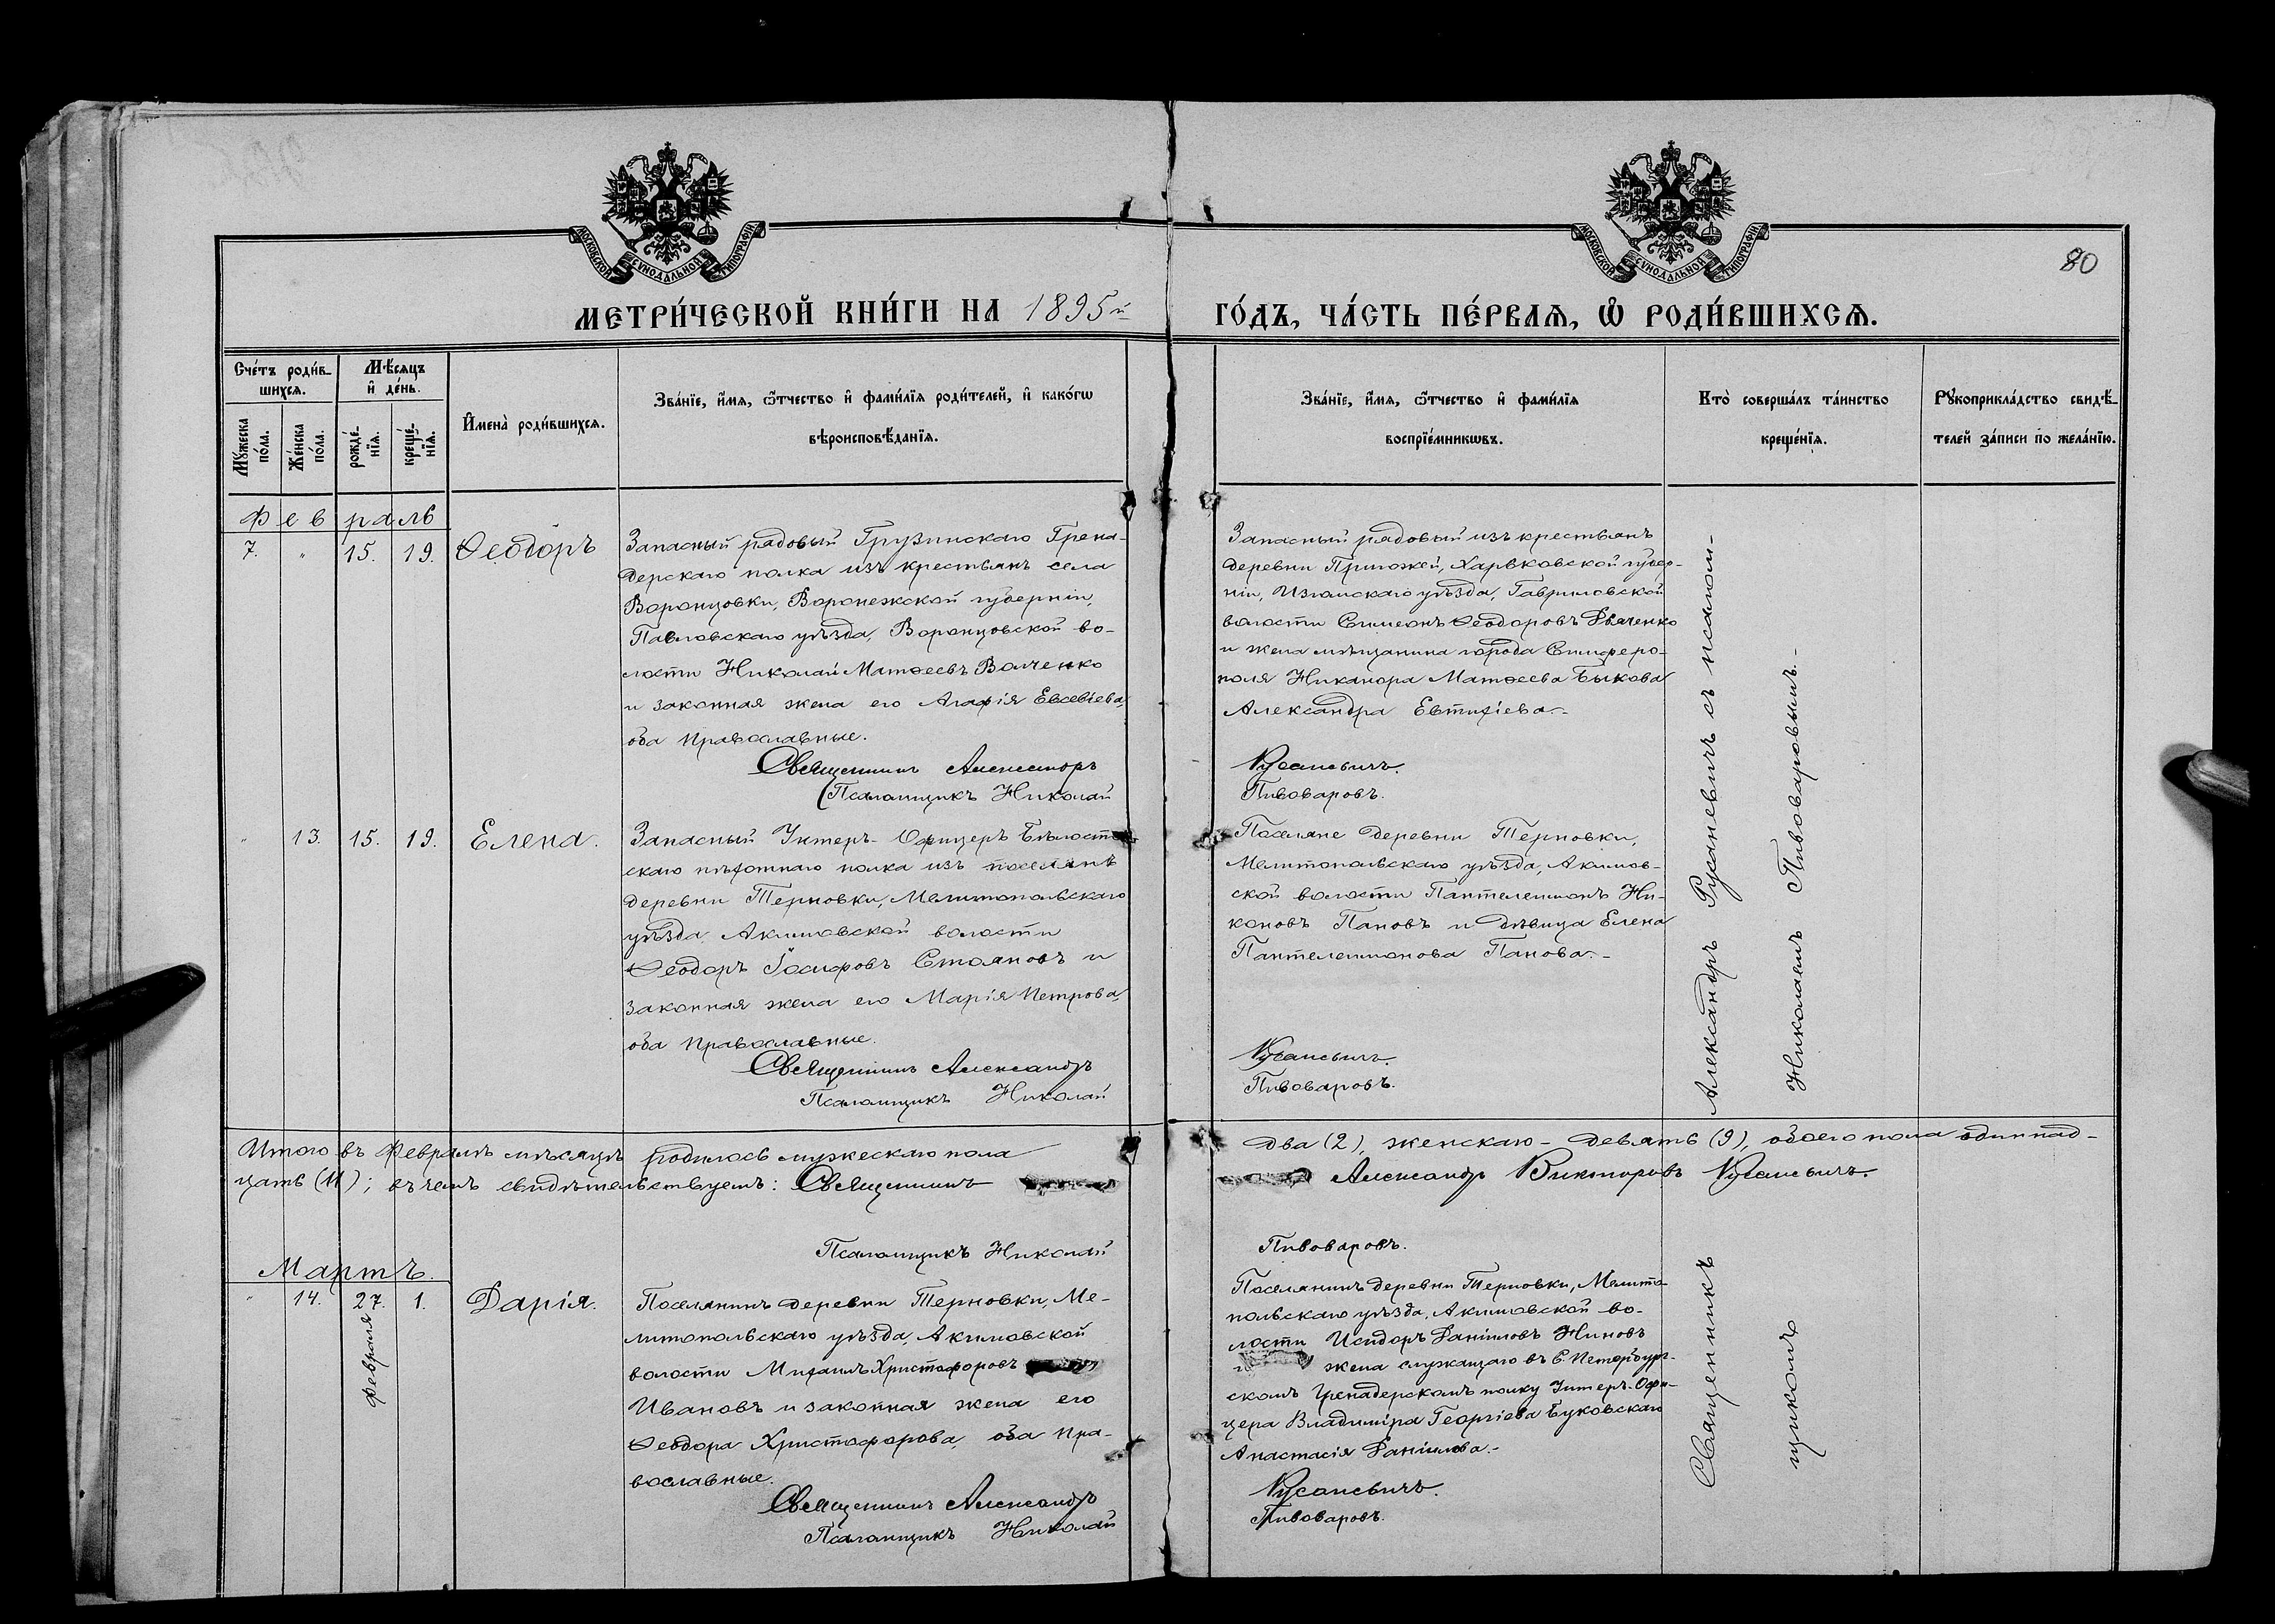 МОСКОВСКОЙ СѴНОДАЛЬНОЙ ТИПОГРАФІИ
МОСКОВСКОЙ СѴНОДАЛЬНОЙ ТИПОГРАФІИ
80
МЕТРИ́ЧЕСКОЙ КНИ́ГИ НА 1895й ГО́ДЪ, ЧА́СТЬ ПЕ́РВАѦ, Ѽ РОДИ́ВШИХСѦ.
Сче́тъ роди́в-
шихсѧ.
Мѣ́сѧцъ
и҆ де́нь.
Мꙋ́жеска
по́ла.
Же́нска
по́ла.
рожде́-
нїѧ.
креще́-
нїѧ.
И҆мена̀ роди́вшихсѧ.
Зва́нїе, и҆́мѧ, ѻ҆́тчество и҆ фами́лїѧ роди́телей, и҆ како́гѡ
вѣроисповѣ́данїѧ.
Зва́нїе, и҆́мѧ, ѻ҆́тчество и҆ фами́лїѧ
воспрїе́мникѡвъ.
Кто̀ соверша́лъ та́инство
креще́нїѧ.
Рꙋкоприкла́дство свидѣ́-
телей за́писи по жела́нїю.
Февраль
7. " 15. 19. Ѳеодоръ
Запасный рядовый Грузинскаго Грена-
дерскаго полка изъ крестьянъ села
Воронцовки, Воронежской губерніи,
Павловскаго уѣзда, Воронцовской во-
лости Николай Матѳеевъ Волченко
и законная жена его Агафія Евсевіева,
оба православные.
Священникъ Александръ
Псаломщикъ Николай
Запасный рядовый изъ крестьянъ
деревни Пригожей, Харьковской губер-
ніи, Изюмскаго уѣзда, Гавриловской
волости Симеонъ Ѳеодоровъ Дьяченко
и жена мѣщанина города Симферо-
поля Никанора Матѳеева Быкова
Александра Евтихіева.-
Русаневичъ.
Пивоваровъ.
" 13. 15. 19. Елена.
Запасный Унтеръ-Офицеръ Бѣлосток-
скаго пѣхотнаго полка изъ поселянъ
деревни Терновки, Мелитопольскаго
уѣзда, Акимовской волости
Ѳеодоръ Іосифовъ Стояновъ и
законная жена его Марія Петрова,
оба православные.
Священникъ Александръ
Псаломщикъ Николай
Поселяне деревни Терновки,
Мелитопольскаго уѣзда, Акимов-
ской волости Пантелеимонъ Ни-
коновъ Пановъ и дѣвица Елена
Пантелеимонова Панова.-
Русаневичъ.
Пивоваровъ.
Итого въ Февралѣ мѣсяцѣ родилось мужескаго пола два (2), женскаго - девять (9), обоего пола одиннад-
цать (11); въ чемъ свидѣтельствуемъ: Священникъ Александръ Викторовъ Русаневичъ.
Псаломщикъ Николай Пивоваровъ.
Мартъ.
" 14. 27. февраля 1. Дарія.
Поселянинъ деревни Терновки, Ме-
литопольскаго уѣзда, Акимовской
волости Михаилъ Христофоровъ
Ивановъ и законная жена его
Ѳеодора Христофорова, оба пра-
вославные.
Священникъ Александръ
Псаломщикъ Николай
Поселянинъ деревни Терновки, Мелито-
польскаго уѣзда, Акимовской во-
лости Исидоръ Даніиловъ Ниновъ
и жена служащаго въ С. Петербург-
скомъ Гренадерскомъ полку Унтеръ-Офи-
цера Владиміра Георгіева Буковскаго
Анастасія Даніилова.-
Русаневичъ.
Пивоваровъ.
Священникъ Александръ Русаневичъ съ псалом-
щикомъ Николаемъ Пивоваровымъ.-